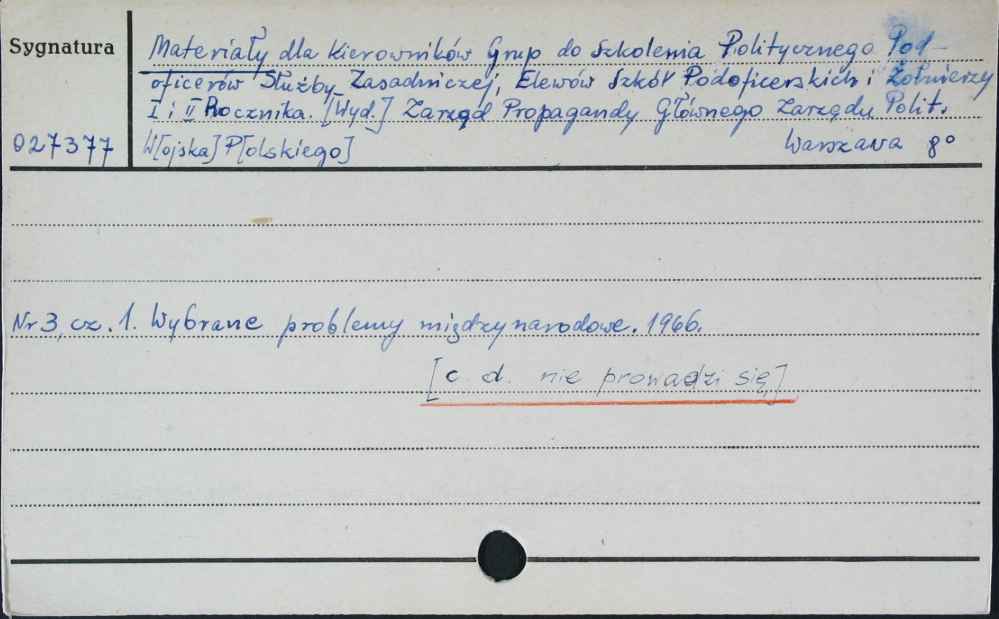 Sygnatura
Materiały dla Kierowników Grup do Szkolenia Politycznego Pod-
oficerów Służby Zasadniczej, Elewów Szkół Podoficerskich i Żołnierzy
I i II Rocznika. [Wyd.] Zarząd Propagandy Głównego Zarządu Polit.
027377 W[ojska] P[olskiego] Warszawa 8°
Nr 3, cz. 1. Wybrane problemy międzynarodowe. 1966.
[c. d. nie prowadzi się]